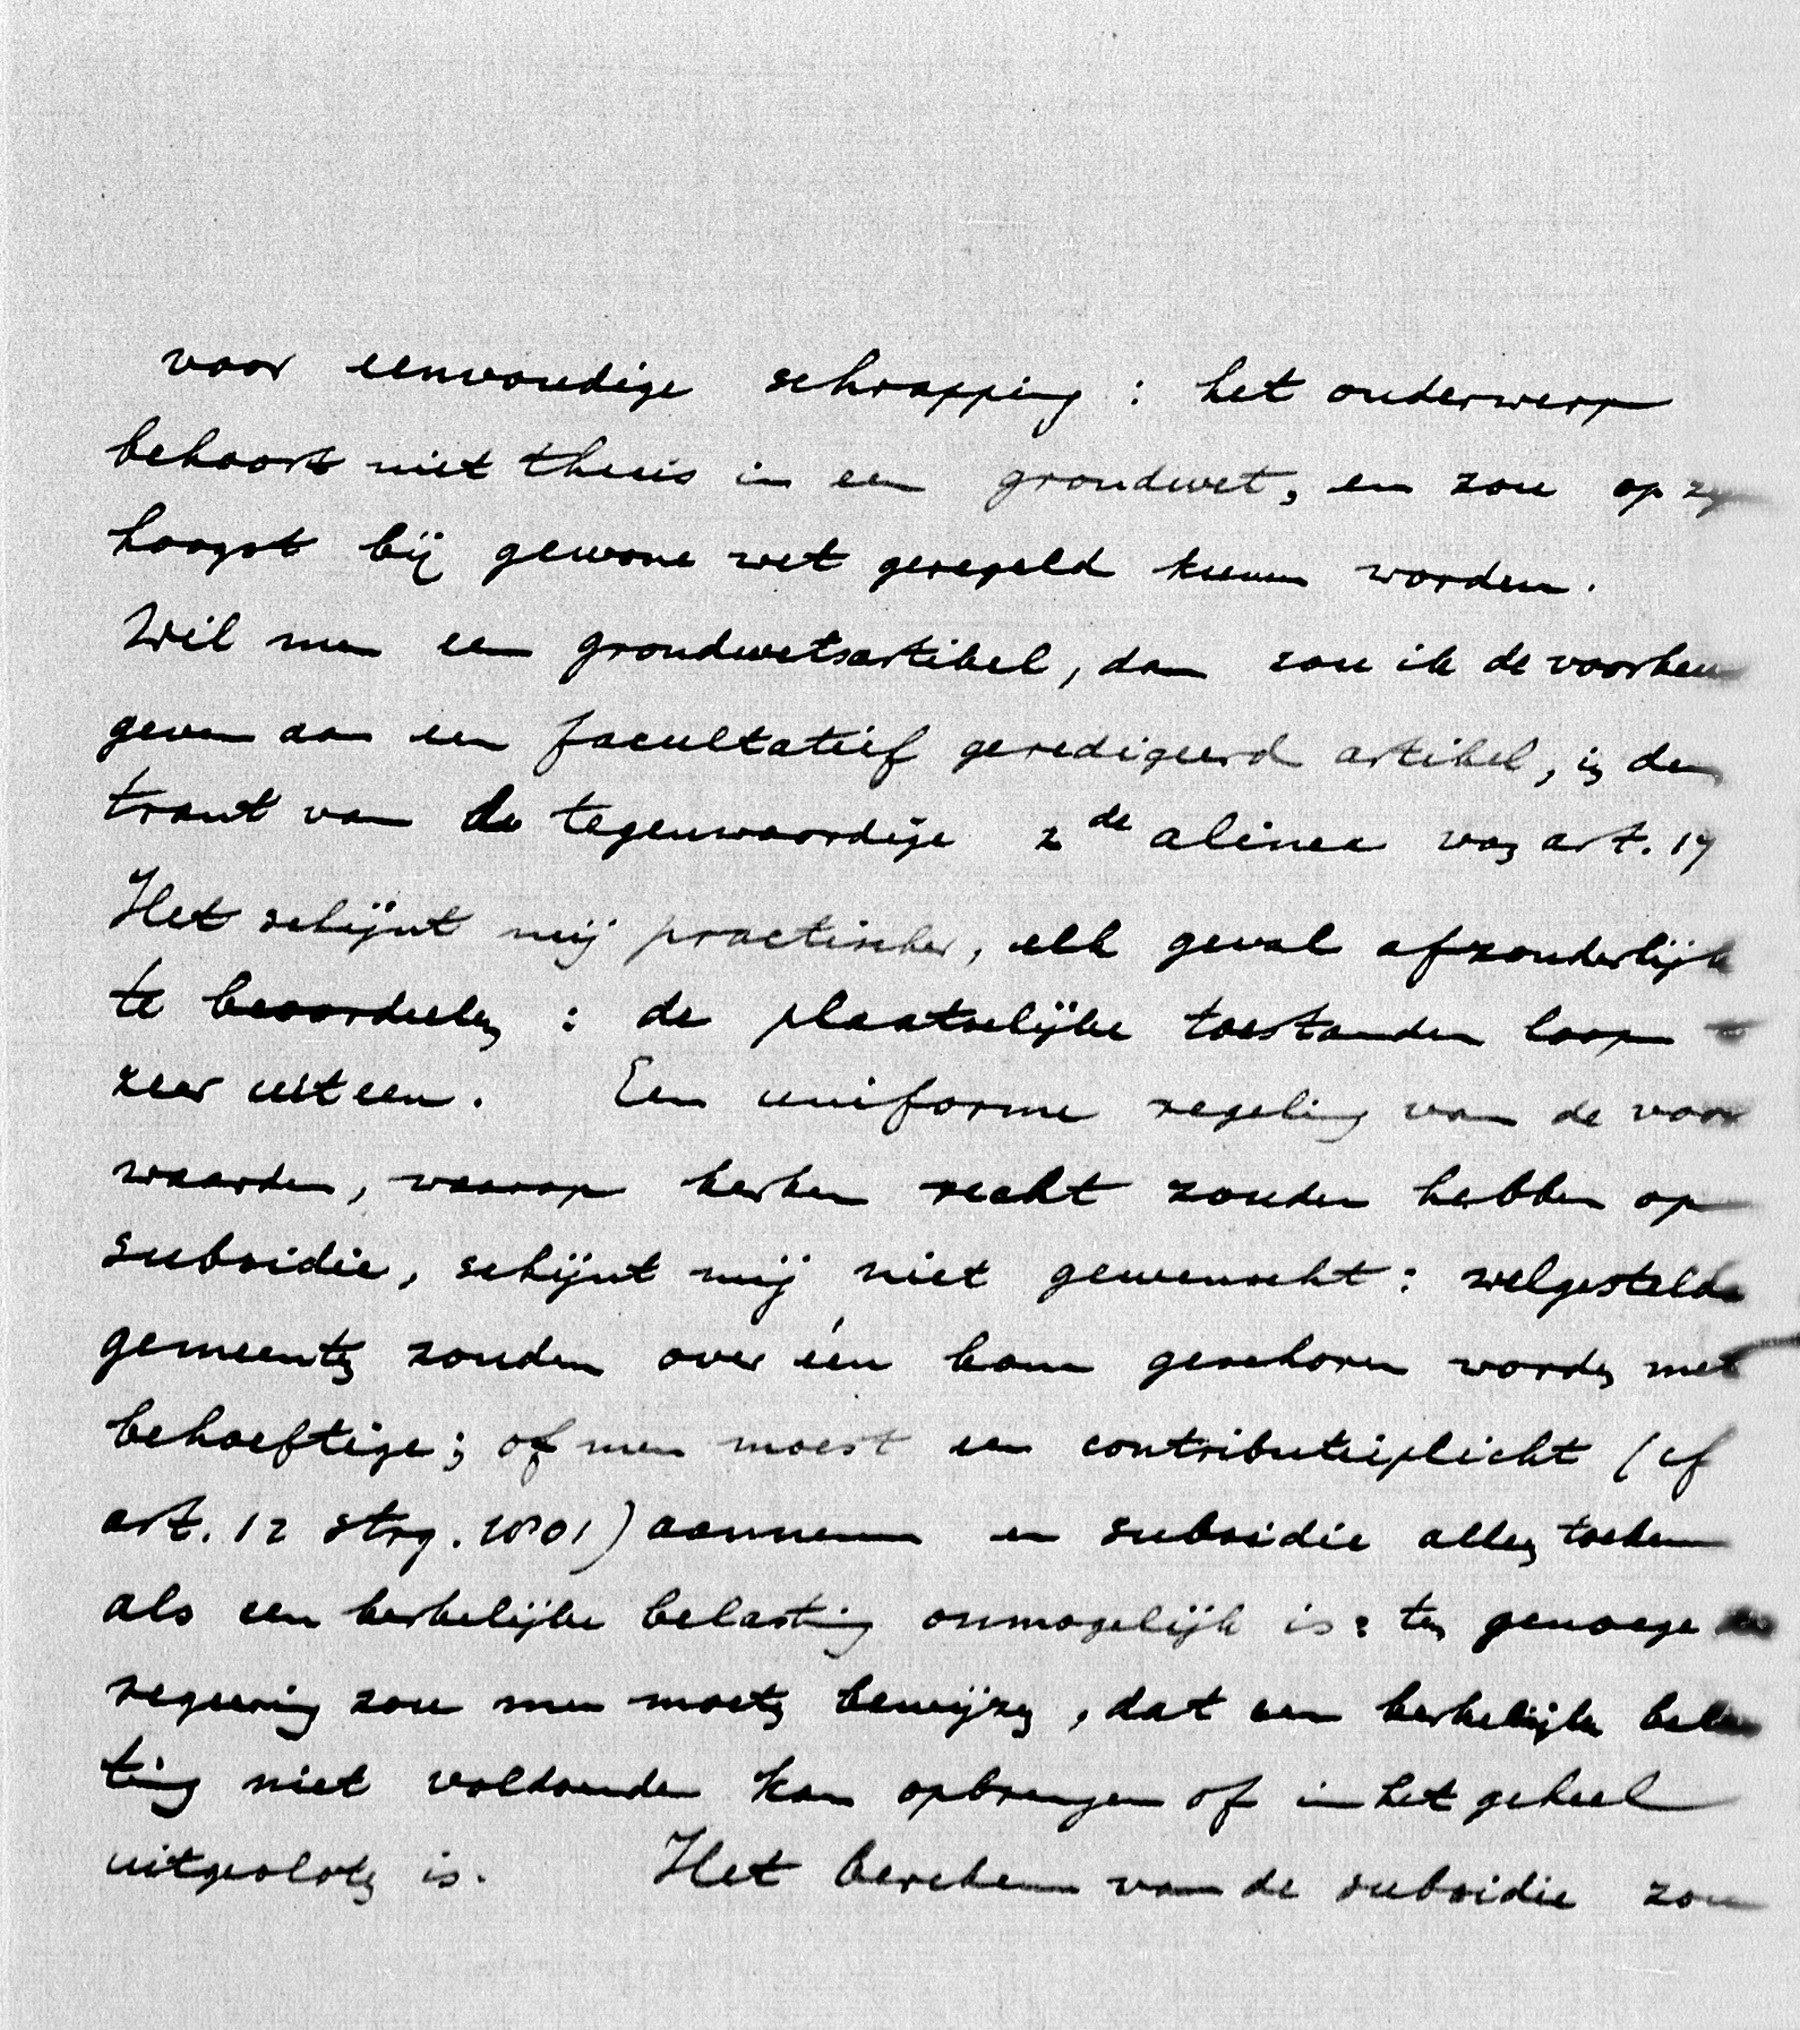 voor eenvoudige schrapping : het onderwerp
behoort niet thuis in een grondwet, en zou op zijn
hoogst bij gewone wet geregeld kunnen worden.
Wil men een grondwetsartikel, dan zou ik de voorkeur
geven aan een facultatief geredigeerd artikel, in den
trant van de tegenwoordige 2de alinea van art. 17
Het schijnt mij practischer, elk geval afzonderlijk
te beoordeelen : de plaatselijke toestanden loopen
zeer uiteen. Een uniforme regeling van de voor
waarden, waarop kerken recht zouden hebben op
subsidie, schijnt mij niet gewenscht : welgestelde
gemeenten zouden over één kam geschoren worden met
behoeftige; of men moest een contributieplicht (cf
art. 12 strg. 1801) aannemen en subsidie alleen toekennen
als een kerkelijke belasting onmogelijk is : ten genoege der
regeering zou men moeten bewijzen, dat een kerkelijke belas
ting niet voldoende kan opbrengen of in het geheel
uitgesloten is. Het berekenen van de subsidie zou